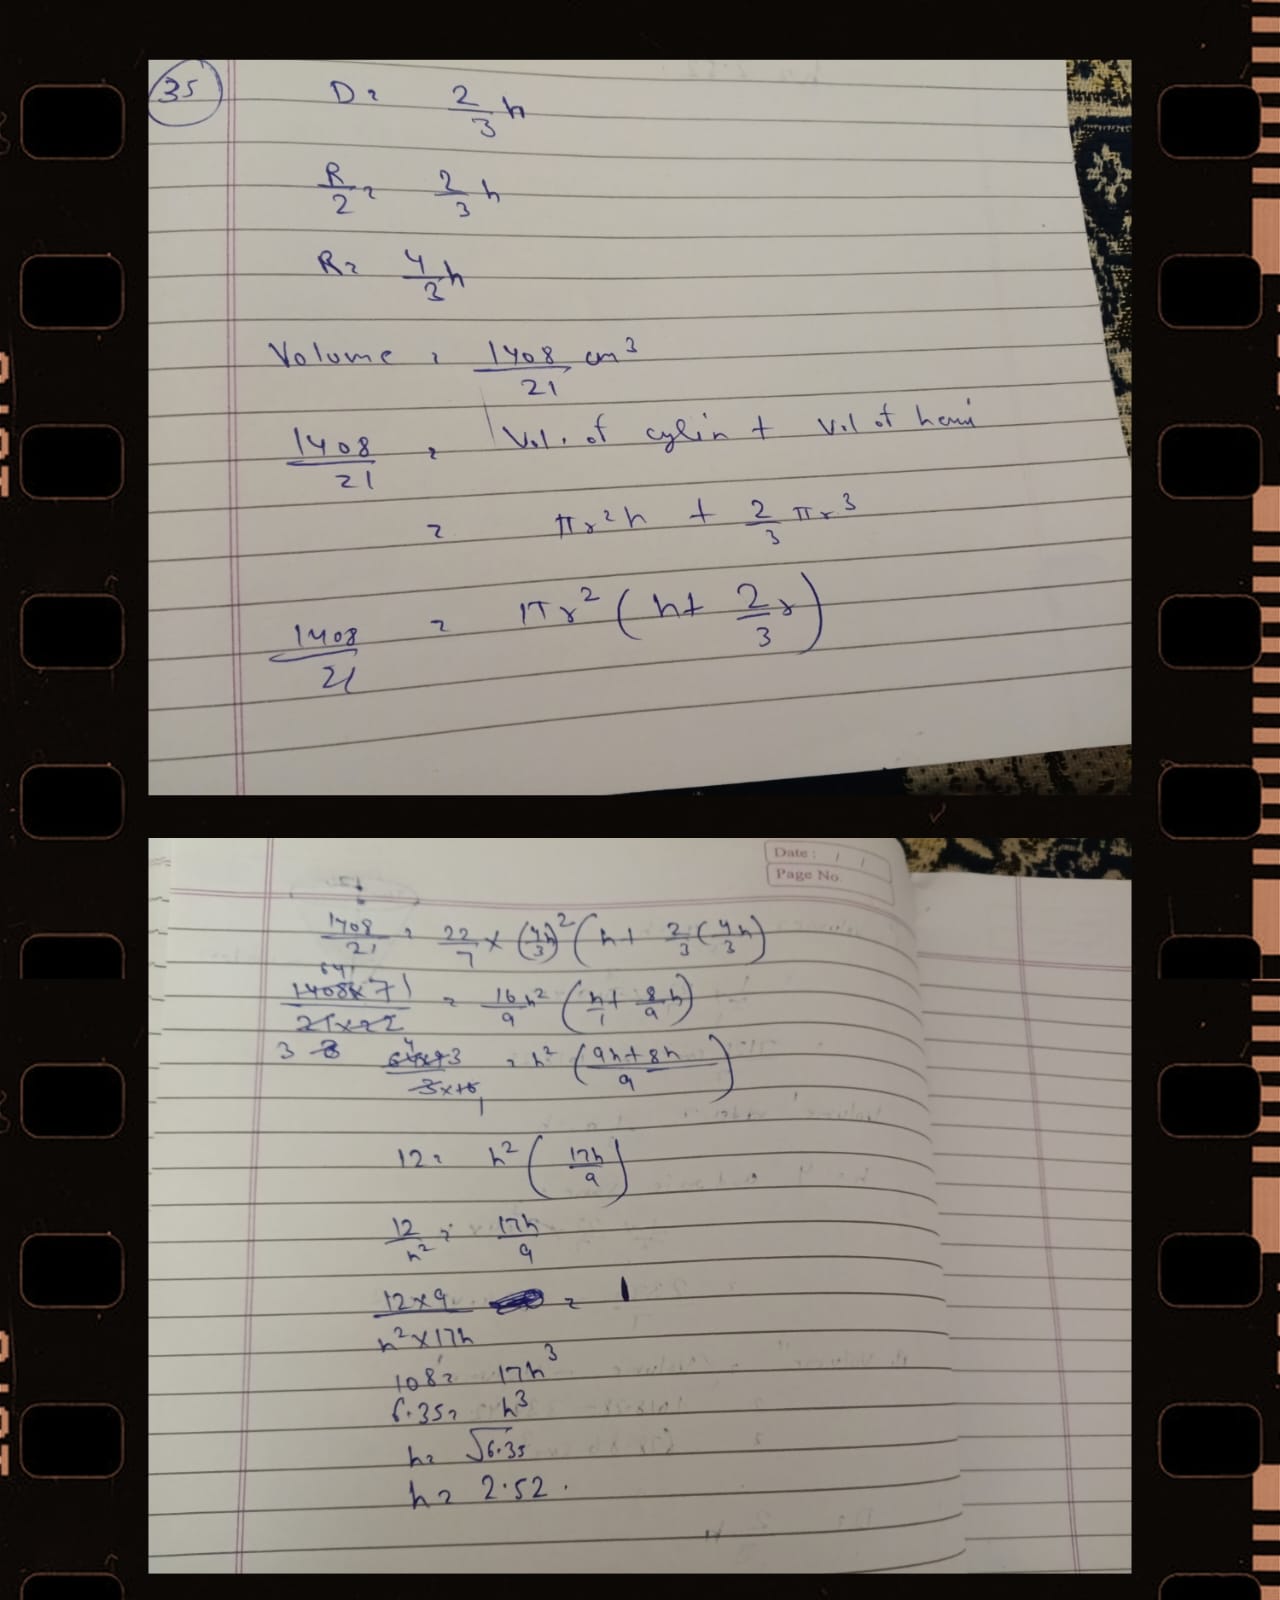 35
D = 2/3 h
R/2 = 2/3 h
R = 4/3 h
Volume = 1408/21 cm³
1408/21 = Vol. of cylin + Vol of hemi
= πr²h + 2/3 πr³
1408/21 = πr² (h + 2/3 r)
Date : / /
Page No.
1408/21 = 22/7 × (4h/3)² (h + 2/3 (4/3 h)
1408 × 7 / 21 × 22 = 16/9 h² (h/1 + 8/9 h)
64 × 3 / 3 × 16 = h² (9h + 8h / 9)
12 = h² (17h/9)
12/h² = 17h/9
12 × 9 / h² × 17h = 1
108 = 17h³
6.35 = h³
h = √6.35
h = 2.52.